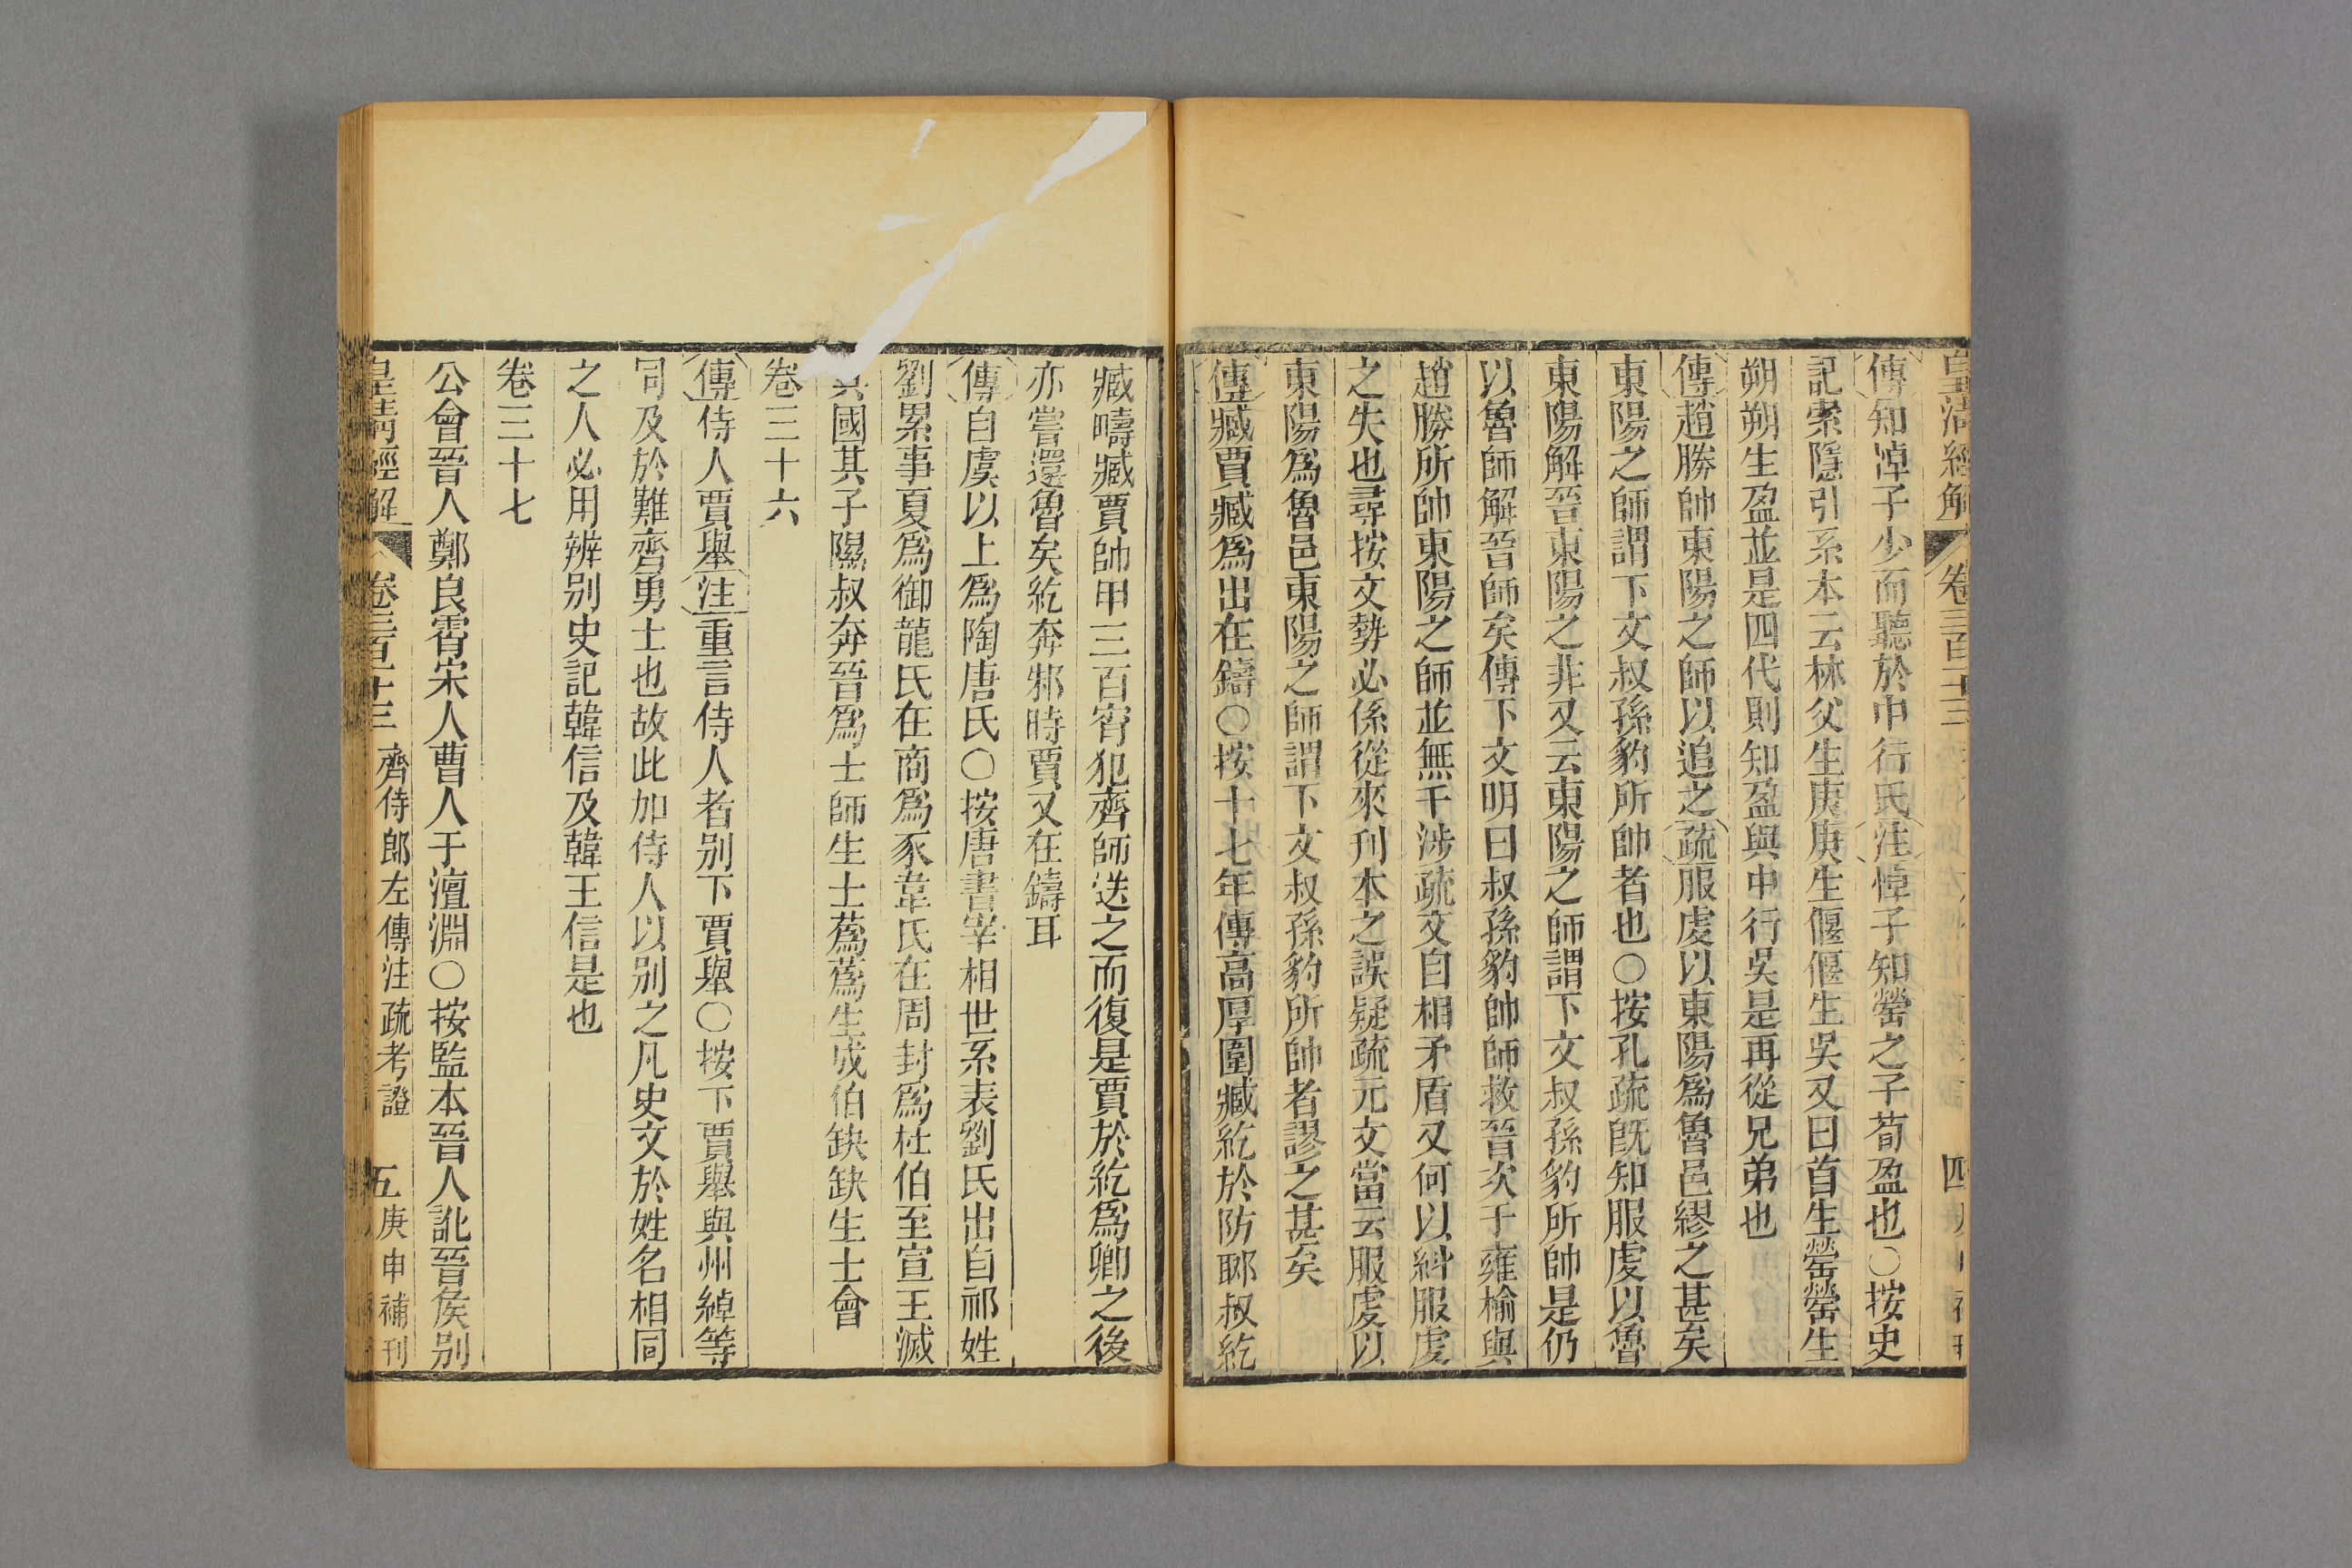 皇清經解 卷三百十三 四
傳知悼子少而聽於中行氏注悼子知罃之子荀盈也○按史
記索隱引系本云林父生庚庚生偃偃生吳又曰首生罃罃生
朔朔生盈並是四代則知盈與中行吳是再從兄弟也
傳趙勝帥東陽之師以追之疏服虔以東陽爲魯邑繆之甚矣
東陽之師謂下文叔孫豹所帥者也○按孔疏旣知服虔以魯
東陽解晉東陽之非又云東陽之師謂下文叔孫豹所帥是仍
以魯師解晉師矣傳下文明曰叔孫豹帥師救晉次于雍榆與
趙勝所帥東陽之師並無干涉疏文自相矛盾又何以糾服虔
之失也尋按文勢必係從來刊本之誤疑疏元文當云服虔以
東陽爲魯邑東陽之師謂下文叔孫豹所帥者謬之甚矣
傳臧賈臧爲出在鑄○按十七年傳高厚圍臧紇於防郰叔紇
臧疇臧賈帥甲三百宵犯齊師送之而復是賈於紇爲卿之後
亦嘗還魯矣紇奔邾時賈又在鑄耳
傳自虞以上爲陶唐氏○按唐書宰相世系表劉氏出自祁姓
劉累事夏爲御龍氏在商爲豕韋氏在周封爲杜伯至宣王滅
其國其子隰叔奔晉爲士師生士蔿蔿生成伯缺缺生士會
卷三十六
傳侍人賈舉注重言侍人者別下賈舉○按下賈舉與州綽等
同及於難齊勇士也故此加侍人以別之凡史文於姓名相同
之人必用辨別史記韓信及韓王信是也
卷三十七
公會晉人鄭良霄宋人曹人于澶淵○按監本晉人訛晉侯別
皇清經解 卷三百十三 齊侍郎左傳注疏考證 五 庚申補刊